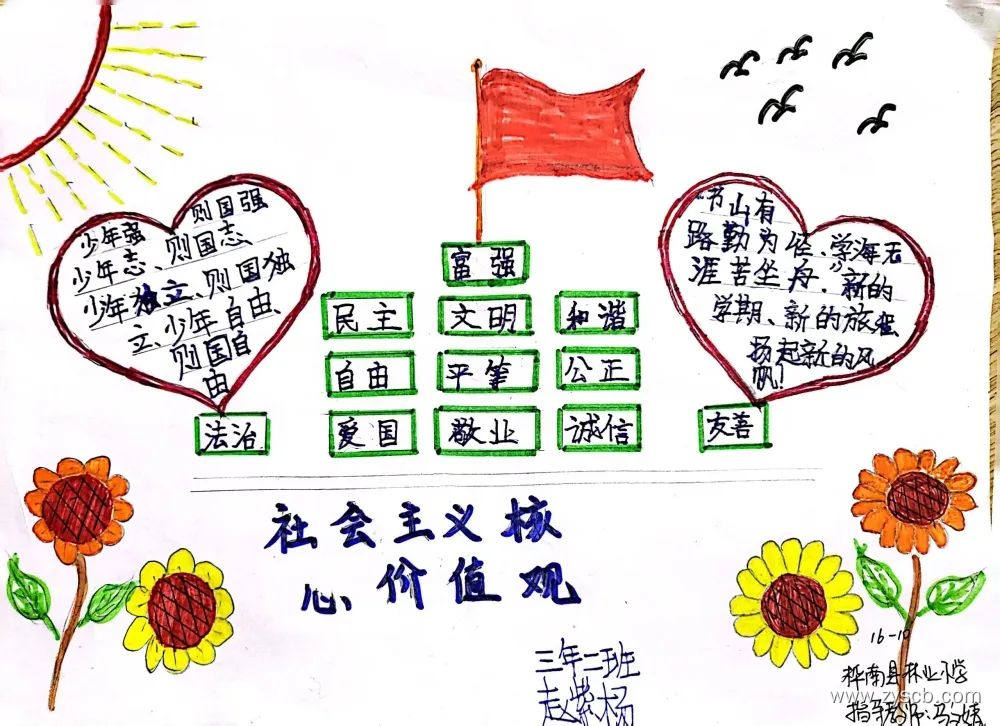 少年强 则国强
少年志、则国志
少年独立、则国独
立、少年自由、
则国自
由
"书山有
路勤为径、学海无
涯苦坐舟"新的
学期、新的旅程
扬起新的风
帆!
富强
民主 文明 和谐
自由 平等 公正
法治 爱国 敬业 诚信 友善
社会主义核
心价值观
三年二班
赵紫杨
16-10
桦南县林业小学
www.zyscb.com